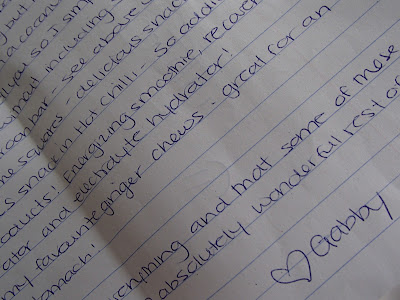 but
a cocon
so I simp
including
bar - see above
squares - delicious since
snack in Hot Chilli - so addi
products! Energizing smoothie, recover
ator and electrolyte hydrator!
my favourite ginger chews - great for an
stomach!
anything and that some of these
absolutely wonderful rest of
♡ Gabby